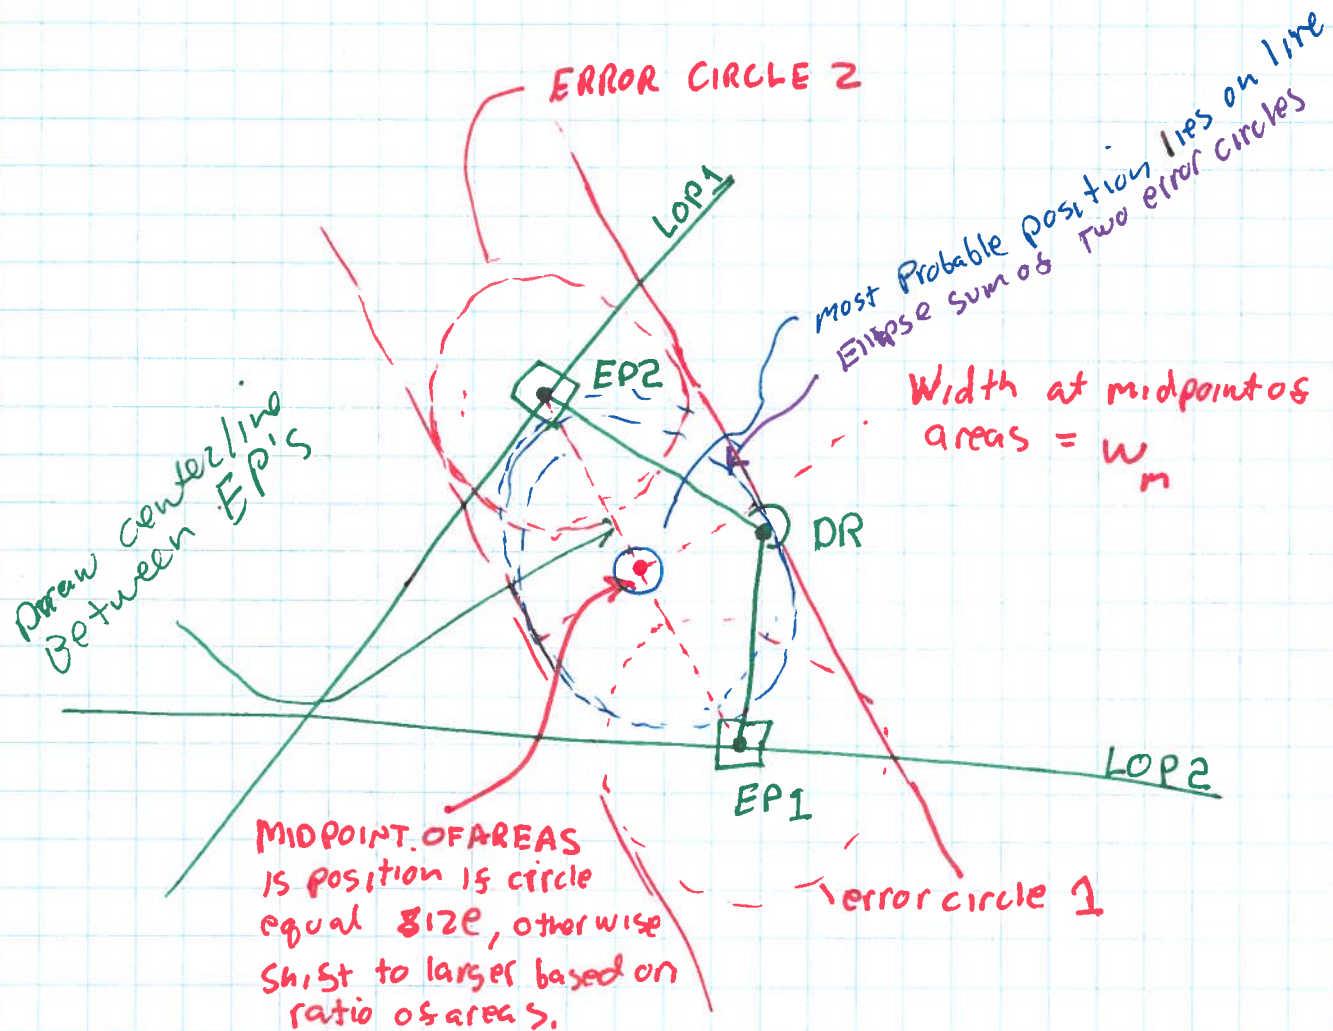 ERROR CIRCLE 2
LOP1
most Probable position lies on line
Ellipse sum of two error circles
EP2
Width at midpoint of
areas = Wm
Draw centerline
Between EP's
DR
LOP2
EP1
MIDPOINT OF AREAS
is position if circle
equal size, otherwise
shift to larger based on
ratio of areas.
error circle 1